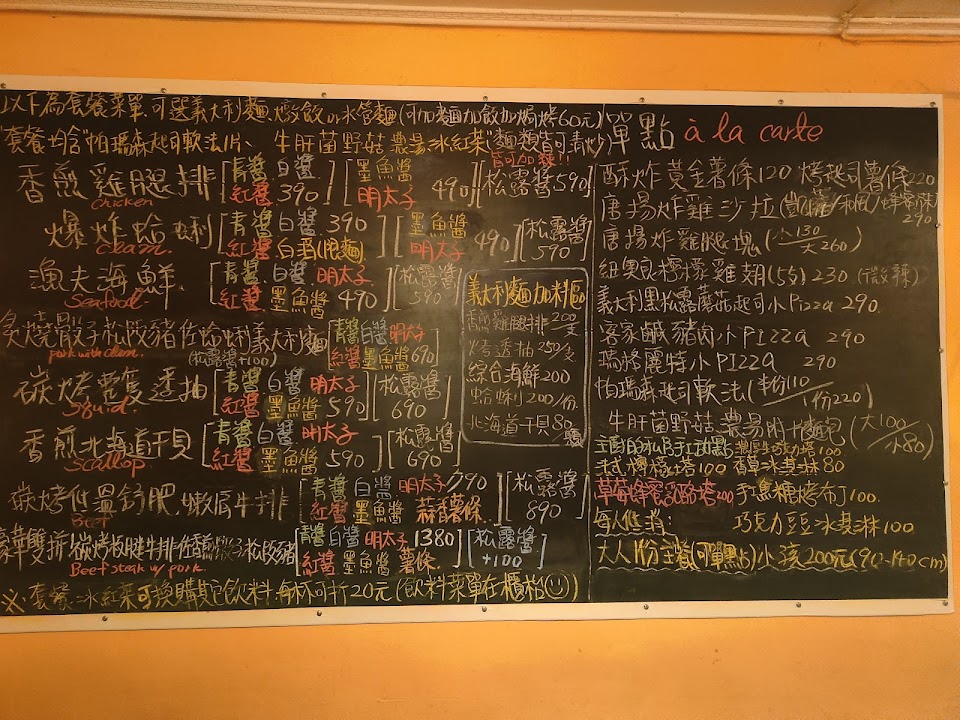 以下為套餐菜單.可選義大利麵.燉飯or水管麵(可加麵加飯加焗烤60元)
"套餐均含"帕瑪森起司軟法1片、牛肝菌野菇濃湯冰紅茶"麵類皆可清炒
皆可加辣!!
香煎雞腿排 [青醬 白醬 紅醬 390] [墨魚醬 明太子 490] [松露醬590]
Chicken
爆炸蛤蜊 [青醬 白醬 390 紅醬 白酒(限麵)] [墨魚醬 明太子 490] [松露醬 590]
Clam.
漁夫海鮮 [青醬 白醬 明太子 紅醬 墨魚醬 490] [松露醬 590]
Seafood.
炙燒骰子松阪豬佐蛤蜊義大利麵 [青醬白醬明太子 紅醬墨魚醬 690]
pork with clam. (松露醬+100)
碳烤整隻透抽 [青醬 白醬 明太子 紅醬 墨魚醬 590] [松露醬 690]
Squid.
香煎北海道干貝 [青醬 白醬 明太子 紅醬 墨魚醬 590] [松露醬 690]
Scallop.
碳烤低溫舒肥.嫩肩牛排 [青醬 白醬 明太子 790 紅醬 墨魚醬 蒜香薯條.] [松露醬 890]
Beef
豪華雙拼.碳烤板腱牛排佐骰子松阪豬 [青醬 白醬 明太子 1380 紅醬 墨魚醬 薯條.] [松露醬 +100]
Beef steak w/ pork.
※.套餐.冰紅茶可換購其它飲料.每杯可折20元(飲料菜單在櫃枱☺)
義大利麵加料區
香煎雞腿排 200/支
烤透抽 250/支
綜合海鮮200
蛤蜊 200/份
北海道干貝 80/顆
單點 à la carte
酥炸黃金薯條120 烤起司薯條220
唐揚炸雞沙拉(凱薩/和風/蜂蜜芥末) 290
唐揚炸雞腿塊(小130/大260)
紐奧良檸檬雞翅(5支) 230 (微辣)
義大利黑松露蘑菇起司小Pizza 290.
客家鹹豬肉小PIZZA 290
瑞格麗特小PIZZA 290
帕瑪森起司軟法(半份110/1份220)
牛肝菌野菇.濃湯附麵包(大100/小80)
100
檸檬塔100 香草冰淇淋80
草莓蜂蜜乳酪塔200 手工焦糖烤布丁100.
每人低消: 巧克力豆豆冰淇淋100
大人1份主餐(可單點)小孩200元(90-140cm)